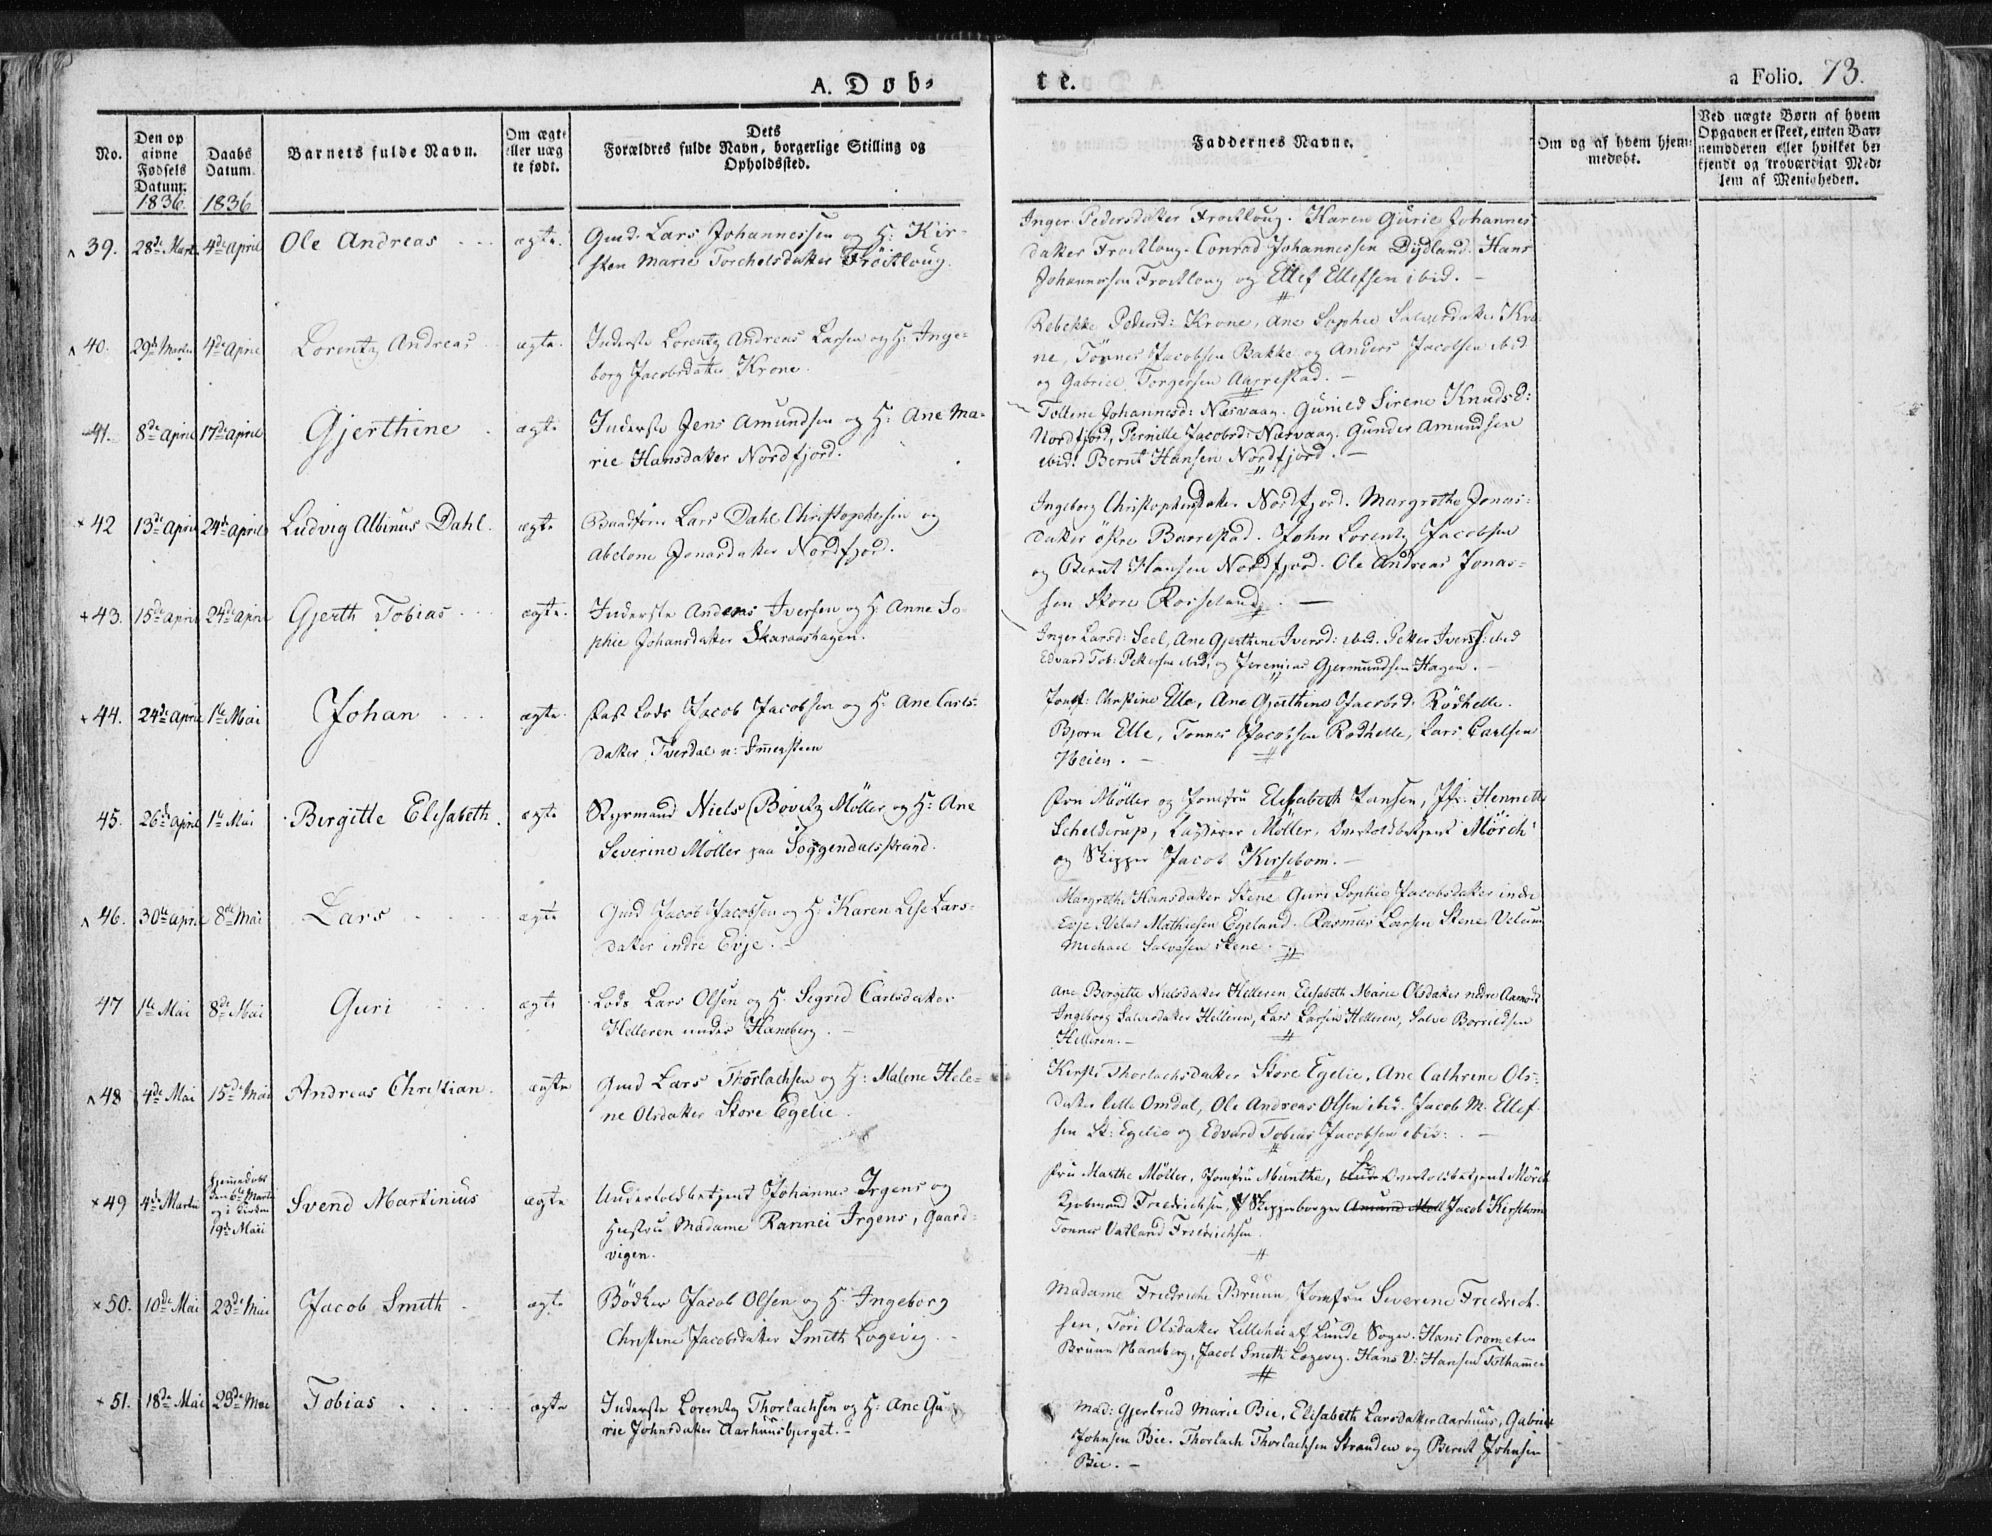 A. Døb-
te.
a Folio. 73.
No.
Den op
givne
Fødsels
Datum.
1836
Daabs
Datum.
1836
Barnets fulde Navn.
Om ægte
eller uæg
te født.
Dets
Forældres fulde Navn, borgerlige Stilling og
Opholdssted.
Faddernes Navne.
Om og af hvem hjem-
medøbt.
Ved uægte Børn af hvem
Opgaven er skeet, enten Bar-
nemoderen eller hvilket be-
kjendt og troværdigt Med-
lem af Menigheden.
39. 28de Mart. 4de April Ole Andreas ægte. Gmd. Lars Johannessen og H: Kir-
sten Marie Torchelsdatter Frøitloug.
Inger Pedersdatter Frøitloug. Karen Gurie Johannes
datter Frøitloug. Conrad Johannessen Dydland. Hans
Johannessen Frøitloug og Ellef Ellefsen ibid.
40. 29de Martii 4de April Lorentz Andreas ægte. Inderste Lorentz Andreas Larsen og H: Inge-
borg Jacobsdatter Krone.
Rebekke Pedersd: Krone, Ane Sophie Salvesdatter Kro-
ne, Tönnes Jacobsen Bakke og Anders Jacobsen ibid
og Gabriel Torgersen Aarrestad.
41. 8de April 17de April Gjerthine ægte Inderste Jens Amundsen og H: Ane Ma-
rie Hansdatter Nordfjord.
Tolline Johannesd: Næsvaag. Gunild Sirene Knudsd:
Nordfjord, Pernille Jacobsd: Næsvaag. Gunder Amundsen
ibid: Bernt Hansen Nordfjord.
42 13de April 24de April Ludvig Albinus Dahl. ægte Baadförer Lars Dahl Christophersen og
Abelone Jonasdatter Nordfjord.
Ingeborg Christophersdatter Nordfjord. Margrethe Jonas-
datter östre Barrestad. John Lorentz Jacobsen
og Bernt Hansen Nordfjord. Ole Andreas Jonas-
sen Store Rosseland.
43. 15de April 24de April Gjerth Tobias ægte. Inderste Anders Iversen og H: Anne So-
phie Johansdatter Skaraashagen.
Inger Larsd: Seel, Ane Gjerthine Iversd: ibid. Petter Iverss: ibid
Edvard Tob: Pettersen ibid, og Jeremias Gjermundsen Hagen.
44. 24de April 1te Mai Johan ægte. Fast Lods Jacob Jacobsen og H: Ane Carls-
datter Tverdal
Jomf: Christine Elle, Ane Gjerthine Jacobsd: Rödhelle.
Bjorn Elle, Tönnes Jacobsen Rödhelle, Lars Carlsen
Heien.
45. 26de April 1te Mai Birgitte Elisabeth. ægte Styrmand Niels Bovitz Möller og H: Ane
Severine Möller paa Soggendalsstrand.
Fru Möller og Jomfru Elisabeth Jansen, Jfr: Hennette
Schelderup, Möller, Overtoldbetjent Mörch
og Skipper Jacob Kirsebom.
46. 30te April 8de Mai Lars ægte Gmd Jacob Jacobsen og H: Karen Lise Lars-
datter indre Evje.
Margrethe Hansdatter Stene Guri Sophie Jacobsdatter indre
Evje Velas Mathiesen Egeland. Rasmus Larsen Stene
Michael Salvesen Stene.
47 1te Mai 8de Mai Guri ægte Lods Lars Olsen og H. Segrid Carlsdatter
Helleren under Haneberg.
Ane Birgitte Nielsdatter Helleren, Elisabeth Marie Olsdatter nedre Aamodt
Ingeborg Salvesdatter Helleren, Lars Larsen Helleren, Salve Borrildsen
Helleren.
48 4de Mai 15de Mai Andreas Christian. ægte Gmd Lars Thorlachsen og H: Malene Hele-
ne Olsdatter Store Egelie.
Kirsti Thorlachsdatter Store Egelie, Ane Cathrine Ols-
datter lille Omdal, Ole Andreas Olsen ibid. Jacob M. Ellef-
sen St: Egelie og Edvard Tobias Jacobsen ibid:
49 4de Martii Hjemmedøbt
den 6te Martii
og i Kirken
19de Maii Svend Martinius ægte Undertoldbetjent Johannes Irgens og
Hustru Madame Rannei Irgens, Gaard-
vigen.
Fru Marthe Möller, Jomfru Munthe, Overtoldbetjent Mörch
Kjøbmand Friedrichsen, Skipperborger Amund Moll Jacob Kirsebom
Tönnes Vatland Friedrichsen.
50. 10de Mai 23de Mai Jacob Smith ægte Bödker Jacob Olsen og H: Ingeborg
Christine Jacobsdatter Smith Logevig.
Madame Friedriche Bruun, Jomfru Severine Friedrich-
sen, Töri Olsdatter Lillehei af Lunde Sogn. Hans Crometin
Bruun Haneberg, Jacob Smith Logevig. Hans V: Hansen Tothammer
51. 18de Mai 23de Mai Tobias ægte Inderste Lorentz Thorlachsen og H: Ane Gu-
rie Johnsdatter Aarhuusbjerget.
Mad: Gjertrud Marie Bie, Elisabeth Larsdatter Aarhuus, Gabriel
Johnsen Bie. Thorlach Thorlachsen Stranden og Berent Johnsen
Bie.